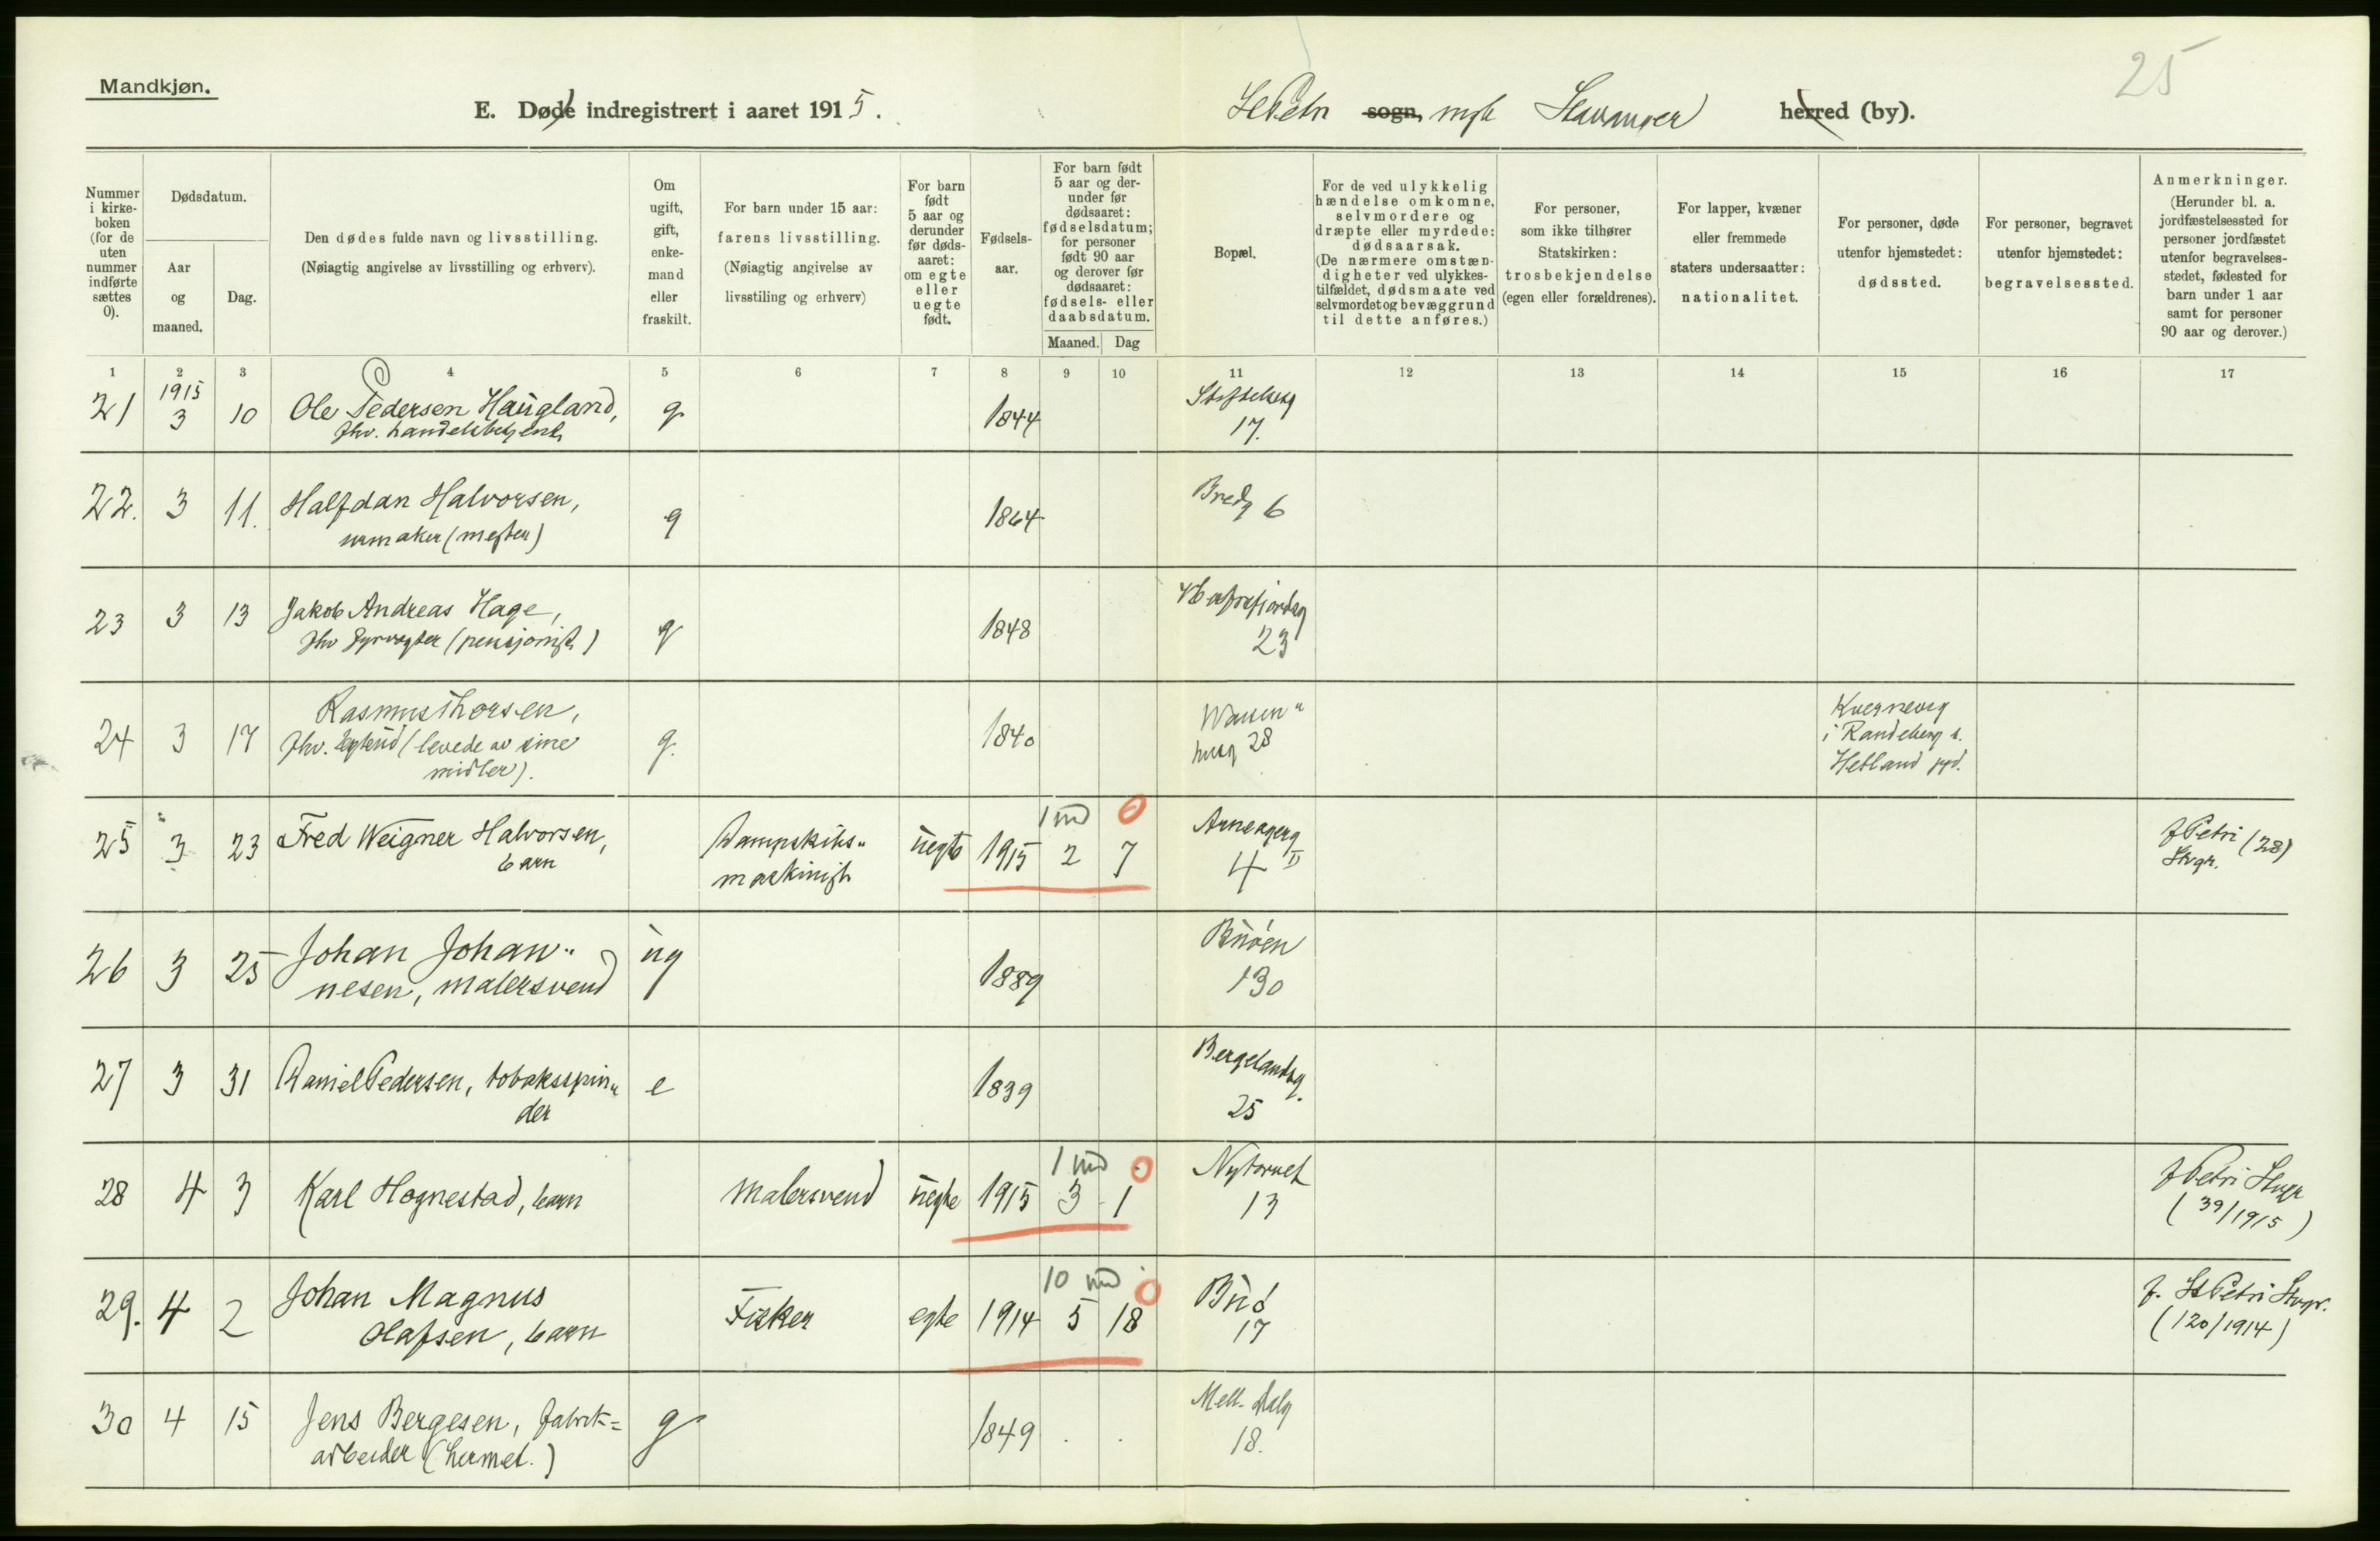 25
Mandkjøn.
E. Døde indregistrert i aaret 1915.
St Petri sogn, mgh Stavanger herred (by).
Nummer i kirkeboken (for de uten nummer indførte sættes 0).
Dødsdatum.
Aar og maaned.
Dag.
Den dødes fulde navn og livsstilling.
(Nøiagtig angivelse av livsstilling og erhverv).
Om ugift, gift, enkemand eller fraskilt.
For barn under 15 aar: farens livsstilling.
(Nøiagtig angivelse av livsstiling og erhverv)
For barn født 5 aar og derunder før dødsaaret: om egte eller uegte født.
Fødselsaar.
For barn født 5 aar og derunder før dødsaaret: fødselsdatum; for personer født 90 aar og derover før dødsaaret: fødsels- eller daabsdatum.
Maaned. Dag
Bopæl.
For de ved ulykkelig hændelse omkomne, selvmordere og dræpte eller myrdede: dødsaarsak.
(De nærmere omstændigheter ved ulykkestilfældet, dødsmaate ved selvmordet og bevæggrund til dette anføres.)
For personer, som ikke tilhører Statskirken: trosbekjendelse (egen eller forældrenes).
For lapper, kvæner eller fremmede staters undersaatter: nationalitet.
For personer, døde utenfor hjemstedet: dødssted.
For personer, begravet utenfor hjemstedet: begravelsessted.
Anmerkninger.
(Herunder bl. a. jordfæstelsessted for personer jordfæstet utenfor begravelsesstedet, fødested for barn under 1 aar samt for personer 90 aar og derover.)
1 2 3 4 5 6 7 8 9 10 11 12 13 14 15 16 17
1915
21 3 10 Ole Pedersen Haugland, g 1844
fhv. handelsbetjent 17.
22. 3 11. Halfdan Halvorsen, g 1864 Bredg 6
urmaker (mester)
23 3 13 Jakob Andreas Hage, g 1848 Hafrsfjordsg
fhv fyrvogter (pensjonist) 23
24 3 17 Rasmus Thorsen, g. 1840 28
fhv. (levede av sine
midler).
Kvernevig
i Randeberg s.
Hetland pgd.
1 md 0
25 3 23 Fred Weigner Halvorsen, Dampskibs- uegte 1915 2 7 Arneagerg
barn maskinist 4 II
f Petri (28)
Stvgr.
26 3 25 Johan Johan- ug 1889 Buøen
nesen, malersvend 130
27 3 31 Daniel Pedersen, tobakspin- e 1839 Bergelandsg.
der 25
1 md 0
28 4 3 Karl Hognestad, barn Malersvend uegte 1915 3 1 Nytorvet
13
f Petri Stvgr
(39/1915)
10 md 0
29. 4 2 Johan Magnus Fisker egte 1914 5 18 Buø
Olafsen, barn 17
f. St Petri Stvgr.
(120/1914)
30 4 15 Jens Bergesen, fabrik= g 1849 Mell. Dalg
arbeider (hermet.) 18.